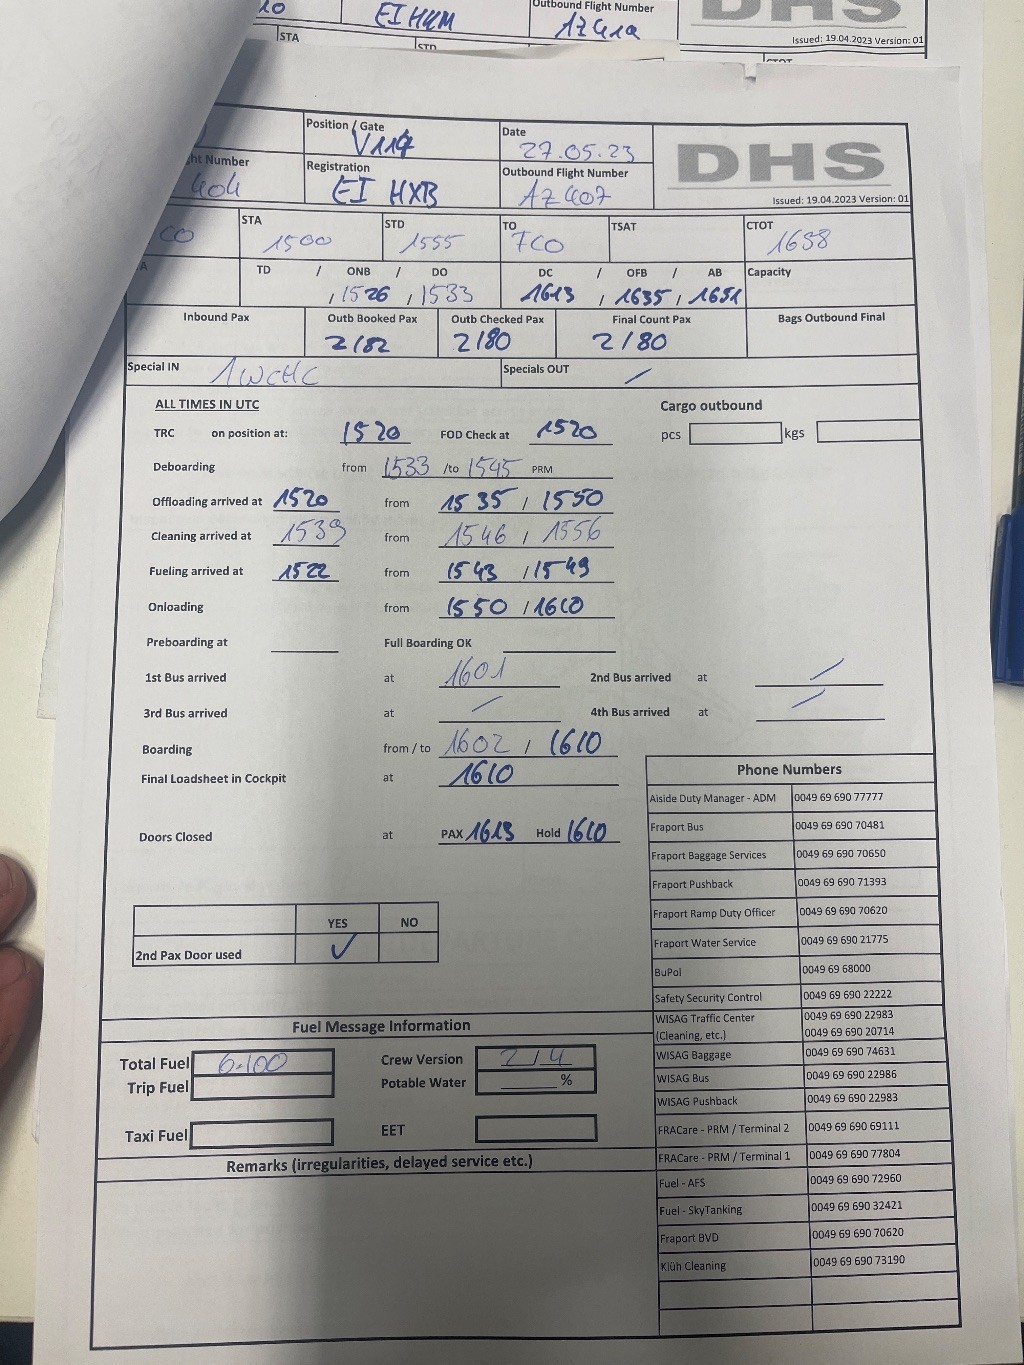 10 EI HKM Outbound Flight Number AZ419 DHS
STA STD CTOT Issued: 19.04.2023 Version: 01
Position / Gate V114 Date 27.05.23 DHS
ht Number 404 Registration EI HXB Outbound Flight Number AZ407 Issued: 19.04.2023 Version: 01
CO STA 1500 STD 1555 TO FCO TSAT CTOT 1638
A TD / ONB / DO DC / OFB / AB Capacity
, 1526 , 1533 1613 , 1635 , 1651
Inbound Pax Outb Booked Pax Outb Checked Pax Final Count Pax Bags Outbound Final
2/82 2/80 2/80
Special IN 1WCHC Specials OUT /
ALL TIMES IN UTC Cargo outbound
TRC on position at: 1520 FOD Check at 1520 pcs kgs
Deboarding from 1533 /to 1545 PRM
Offloading arrived at 1520 from 1535 / 1550
Cleaning arrived at 1539 from 1546 / 1556
Fueling arrived at 1522 from 1543 / 1549
Onloading from 1550 / 1610
Preboarding at Full Boarding OK
1st Bus arrived at 1601 2nd Bus arrived at /
3rd Bus arrived at / 4th Bus arrived at /
Boarding from / to 1602 / 1610
Final Loadsheet in Cockpit at 1610
Doors Closed at PAX 1613 Hold 1610
YES NO
2nd Pax Door used ✓
Phone Numbers
Aiside Duty Manager - ADM 0049 69 690 77777
Fraport Bus 0049 69 690 70481
Fraport Baggage Services 0049 69 690 70650
Fraport Pushback 0049 69 690 71393
Fraport Ramp Duty Officer 0049 69 690 70620
Fraport Water Service 0049 69 690 21775
BuPol 0049 69 68000
Safety Security Control 0049 69 690 22222
WISAG Traffic Center 0049 69 690 22983
(Cleaning, etc.) 0049 69 690 20714
WISAG Baggage 0049 69 690 74631
WISAG Bus 0049 69 690 22986
WISAG Pushback 0049 69 690 22983
FRACare - PRM / Terminal 2 0049 69 690 69111
FRACare - PRM / Terminal 1 0049 69 690 77804
Fuel - AFS 0049 69 690 72960
Fuel - SkyTanking 0049 69 690 32421
Fraport BVD 0049 69 690 70620
Klüh Cleaning 0049 69 690 73190
Fuel Message Information
Total Fuel 6.100 Crew Version 2/4
Trip Fuel Potable Water %
Taxi Fuel EET
Remarks (irregularities, delayed service etc.)